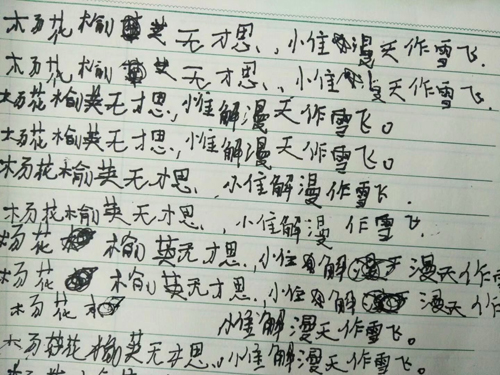 杨花榆荚无才思,惟漫天作雪飞.
杨花榆荚无才思,惟漫天作雪飞.
杨花榆荚无才思,惟解漫天作雪飞。
杨花榆荚无才思,惟解漫天作雪飞。
杨花榆荚无才思,惟解漫作雪飞.
杨花榆荚无才思,惟解漫作雪飞
杨花榆荚无才思,惟解漫天作雪飞。
杨花榆荚无才思,惟解漫天作
杨花惟解漫天作雪飞。
杨花榆荚无才思.惟解漫天作雪飞。